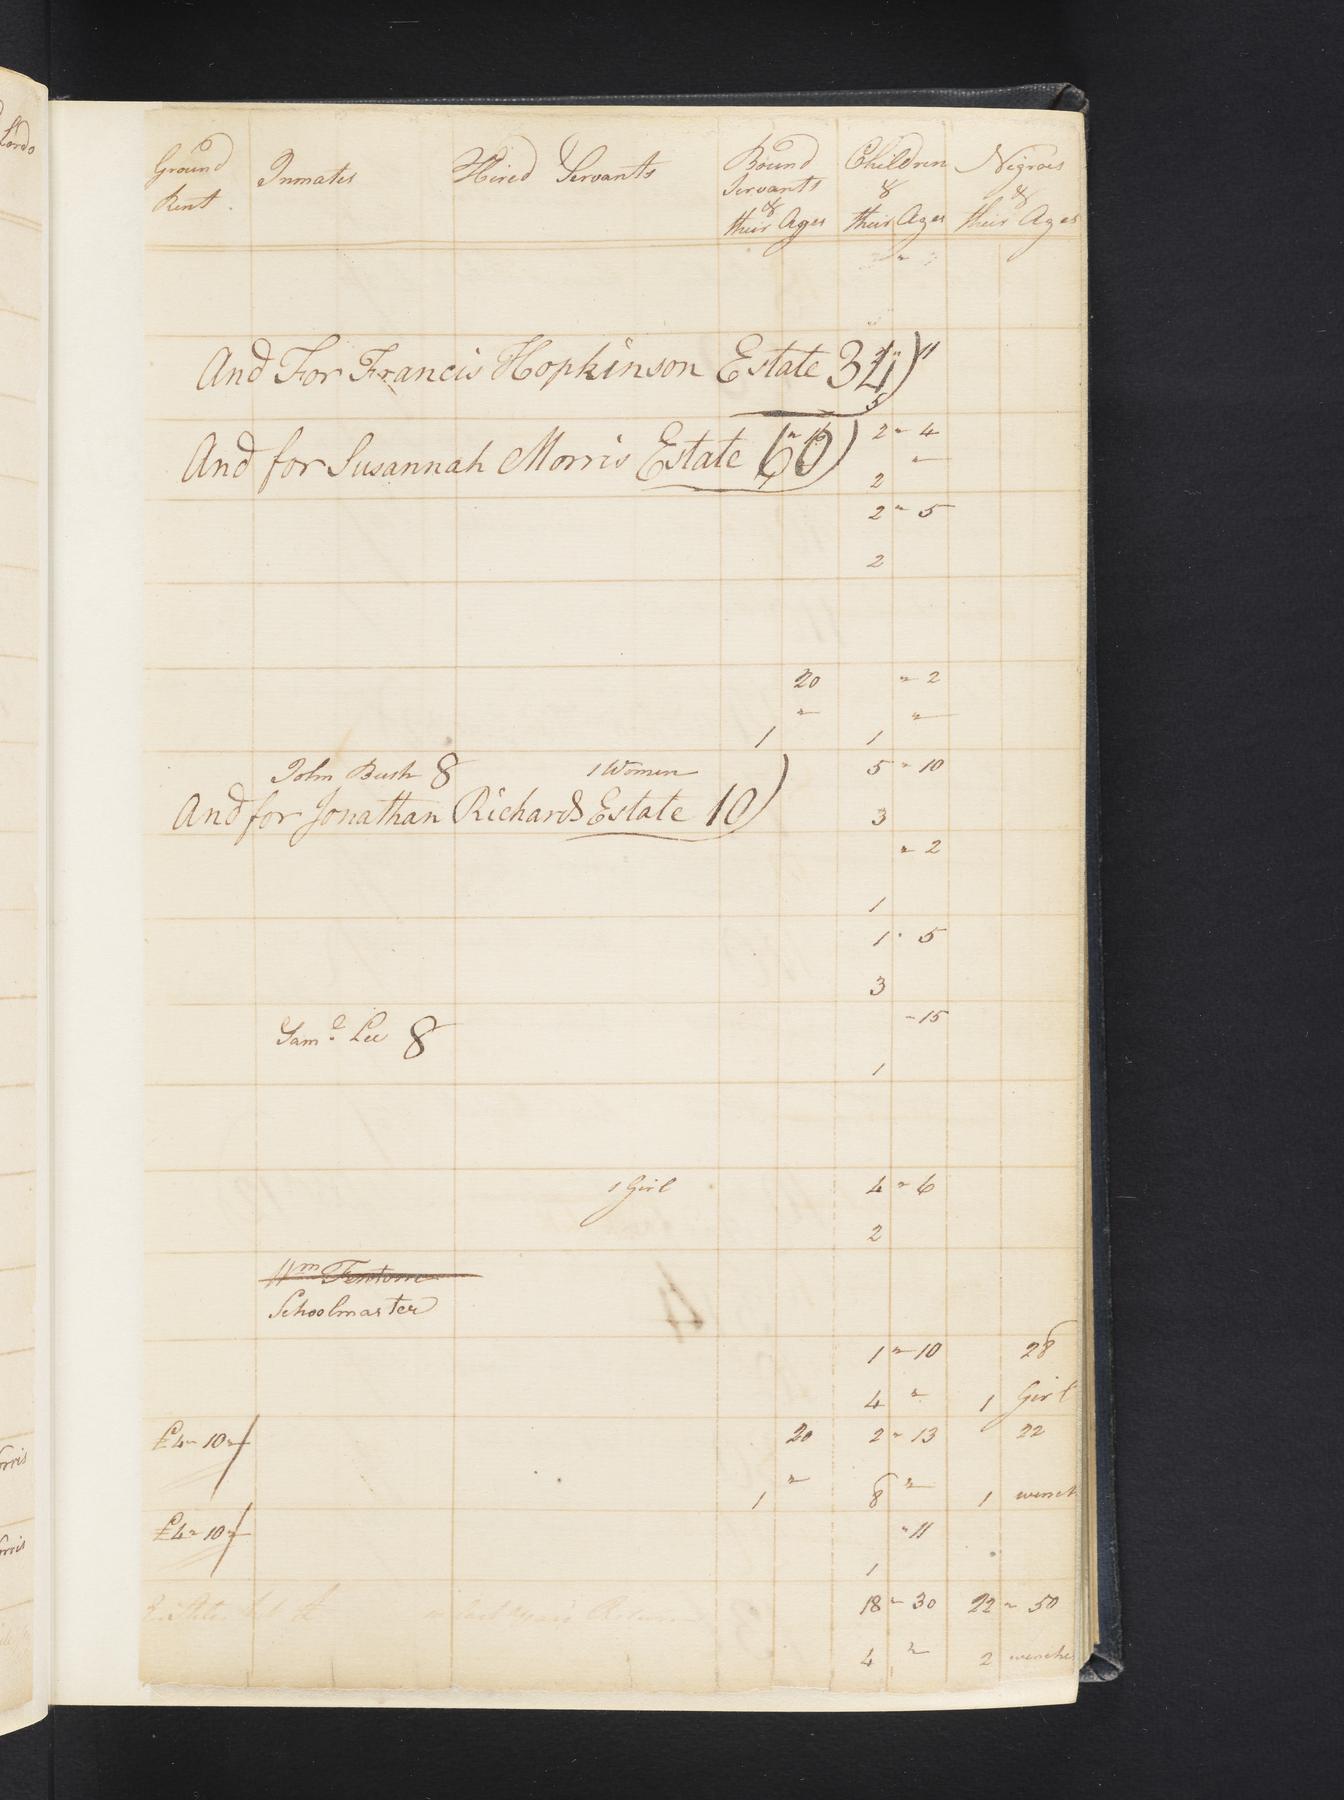 Ground Rent. Inmates Hired Servants Bound Servants & their Ages Children & their Ages Negroes & their Ages
And For Francis Hopkinson Estate 34)
5
2 " 4
And for Susannah Morris Estate 60)
2 "
2 " 5
2
20 " 2
1 " 1 "
John Bush 8 1 Women 5 " 10
And for Jonathan Richards Estate 10) 3
" 2
1
1 " 5
3
" 15
Sam.l Lee 8
1
1 Girl 4 " 6
2
Wm Fentom
Schoolmaster
1 " 10 28
4 " 1 Girl
£4 " 10 " 20 2 " 13 22
1 " 8 " 1 wench
£4 " 10 " " 11
1
18 " 30 22 " 50
4 " 2 wenche